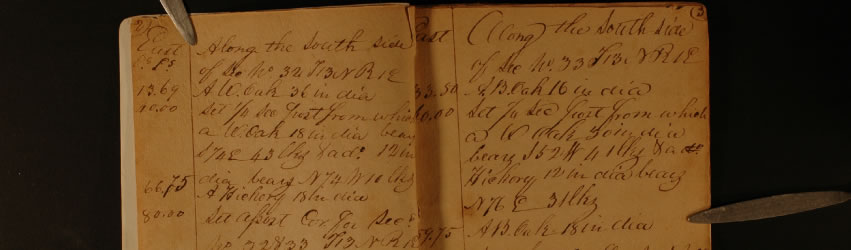 2
East
Cs Ls
Along the South side
of Sec No. 32 T13 N R 1 E
13.69 A W. Oak 36 in dia
40.00 Set 1/4 Sec Post from which
a W Oak 18 in dia bears
S 74 E 43 lks & a do 12 in
dia bears N 74 W 10 lks
66.75 A Hickory 18 in dia
80.00 Set a Post Cor for Secs
No. 32 & 33 T13 N R 1 E
3
East
Along the South side
of Sec No. 33 T13 N R 1 E
33.50 A B. Oak 16 in dia
40.00 Set 1/4 Sec Post from which
a W Oak in dia
bears S 52 W 41 lks & a
Hickory 12 in dia bears
N 76 E 31 lks
A B. Oak 18 in dia